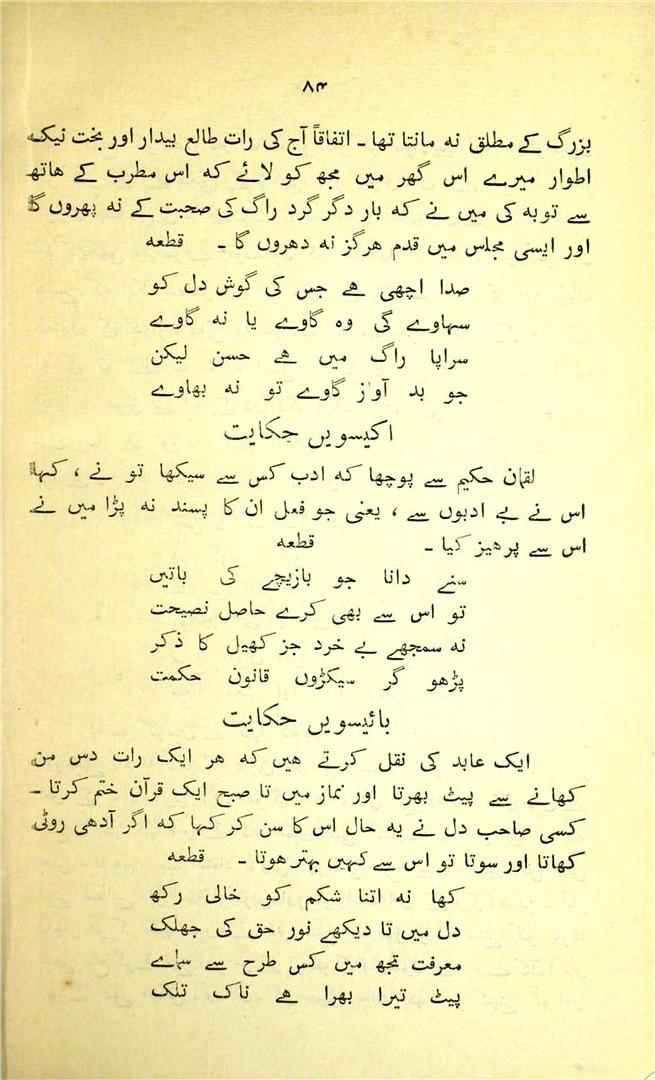 ۸۴
بزرگ کے مطلق نہ مانتا تھا ـ اتفاقاً آج کی رات طالع بیدار اور بخت نیک
اطوار میرے اس گھر میں مجھ کو لائے کہ اس مطرب کے ہاتھ
سے توبہ کی میں نے کہ بار دگر گرد راگ کی صحبت کے نہ پھروں گا
اور ایسی مجلس میں قدم ہرگز نہ دھروں گا ـ قطعہ
صدا اچھی ہے جس کی گوش دل کو
سہاوے گی وہ گاوے یا نہ گاوے
سراپا راگ میں ہے حسن لیکن
جو بد آواز گاوے تو نہ بھاوے
اکیسویں حکایت
لقمان حکیم سے پوچھا کہ ادب کس سے سیکھا تو نے ، کہا
اس نے بے ادبوں سے ، یعنی جو فعل ان کا پسند نہ پڑا میں نے
اس سے پرہیز کیا ـ قطعہ
سنے دانا جو بازیچے کی باتیں
تو اس سے بھی کرے حاصل نصیحت
نہ سمجھے بے خرد جز کھیل کا ذکر
پڑھو گر سیکڑوں قانون حکمت
بائیسویں حکایت
ایک عابد کی نقل کرتے ہیں کہ ہر ایک رات دس من
کھانے سے پیٹ بھرتا اور نماز میں تا صبح ایک قرآن ختم کرتا ـ
کسی صاحب دل نے یہ حال اس کا سن کر کہا کہ اگر آدھی روٹی
کھاتا اور سوتا تو اس سے کہیں بہتر ہوتا ـ قطعہ
کھا نہ اتنا شکم کو خالی رکھ
دل میں تا دیکھے نور حق کی جھلک
معرفت تجھ میں کس طرح سے سماے
پیٹ تیرا بھرا ہے ناک تلک